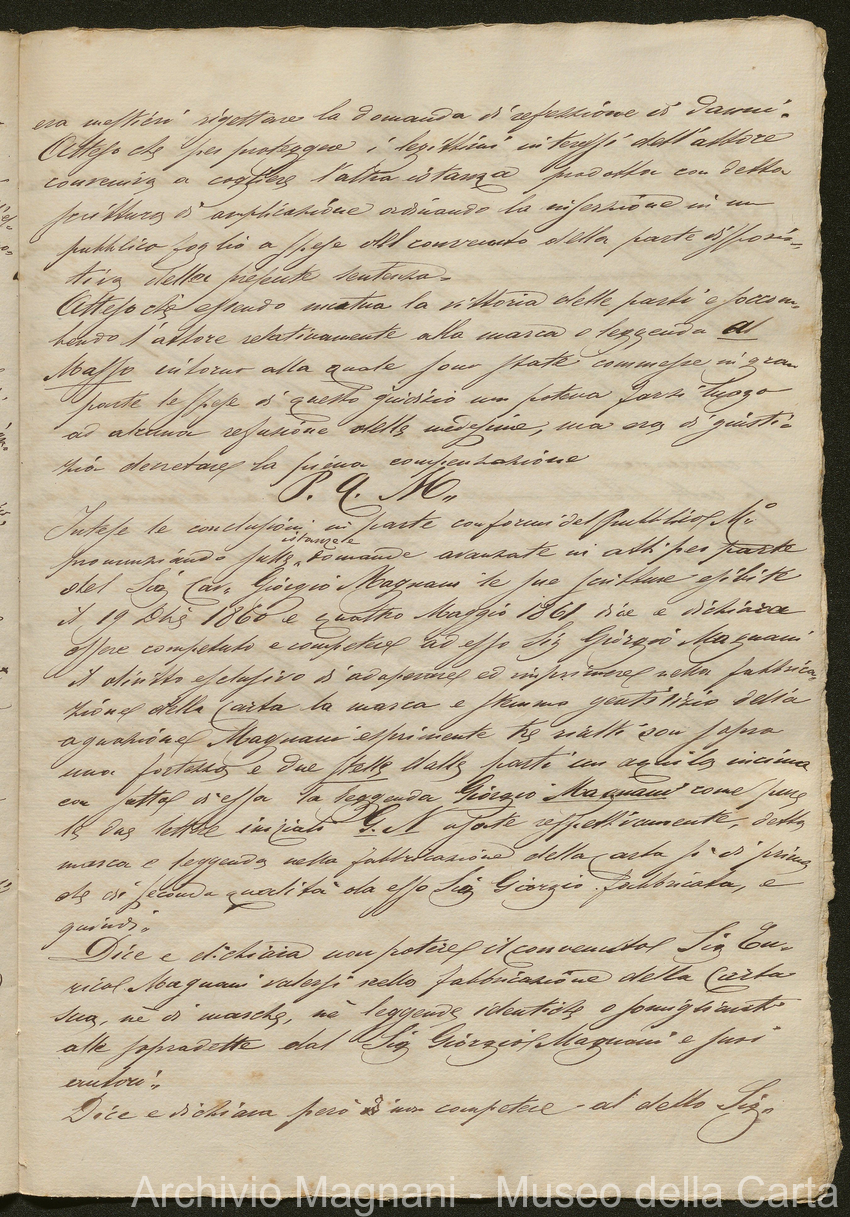 era mestieri rigettare la domanda di refezione di danni.
Attesochè per proteggere i legittimi interessi dell'attore
conveniva accogliere l'altra istanza prodotta con detta
scrittura di amplicazione ordinando la inserzione in un
pubblico foglio a spese del convenuto della parte disposi-
tiva della presente sentenza.
Attesochè essendo mutua la vittoria delle parti e soccom-
bendo l'attore relativamente alla marca o leggenda al
Masso intorno alla quale sono state commesse in gran
parte le spese di questo giudizio non poteva farsi luogo
ad alcuna refusione delle medesime, ma era di giusti-
zia decretare la piena compensazione
P. Q. M.
Intese le conclusioni in parte conformi del Pubblico Mº
pronunziando sulle istanze e domande avanzate in atti per parte
del Sig Cav. Giorgio Magnani le sue scritture esibite
il 19 Dbre 1860 e quattro Maggio 1861 dice e dichiara
essere competuto e competere ad esso Sig Giorgio Magnani
il diritto esclusivo di adoperare ed imprimere nella fabbrica-
zione della Carta la marca e stemma gentilizio della
agnazione Magnani esprimente tre monti con sopra
una fortezza e due stelle dalle parti un aquila in cima
con sotto di essa la leggenda Giorgio Magnani come pure
le due lettere iniziali G. M apposte respettivamente, detta
marca e leggenda nella fabbricazione della carta sì di prima
che di seconda qualità da esso Sig Giorgio fabbricata, e
quindi.
Dice e dichiara non potere il convenuto Sig En-
rico Magnani valersi nella fabbricazione della Carta
sua, nè di marche, nè leggende identiche o somiglianti
alle sopradette dal Sig Giorgio Magnani e suoi
autori.
Dice e dichiara però non competere al detto Sig.
Archivio Magnani - Museo della Carta